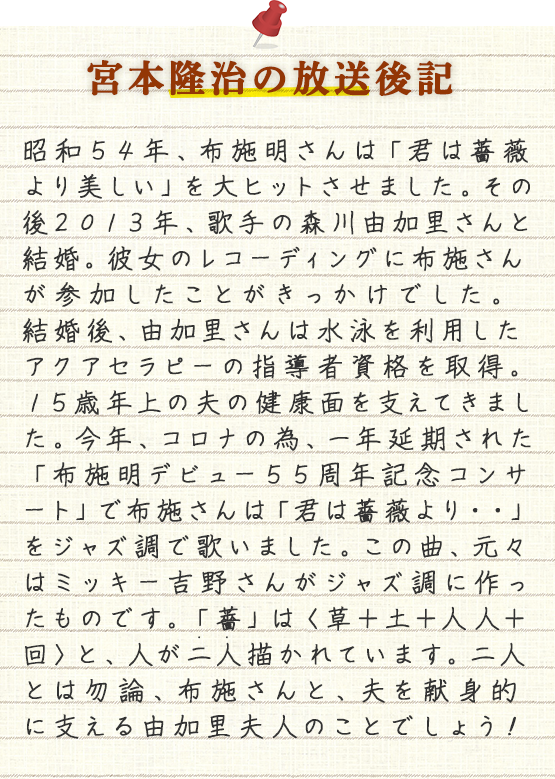 宮本隆治の放送後記
昭和54年、布施明さんは「君は薔薇
より美しい」を大ヒットさせました。その
後2013年、歌手の森川由加里さんと
結婚。彼女のレコーディングに布施さん
が参加したことがきっかけでした。
結婚後、由加里さんは水泳を利用した
アクアセラピーの指導者資格を取得。
15歳年上の夫の健康面を支えてきまし
た。今年、コロナの為、一年延期された
「布施明デビュー55周年記念コンサ
ート」で布施さんは「君は薔薇より・・」
をジャズ調で歌いました。この曲、元々
はミッキー吉野さんがジャズ調に作っ
たものです。「薔」は〈草＋土＋人人＋
回〉と、人が二人描かれています。二人
とは勿論、布施さんと、夫を献身的
に支える由加里夫人のことでしょう！